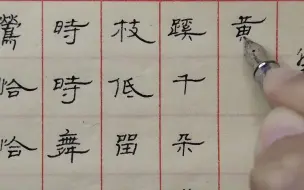 黄
蹊千朵
枝低留
時時舞
鶯恰恰